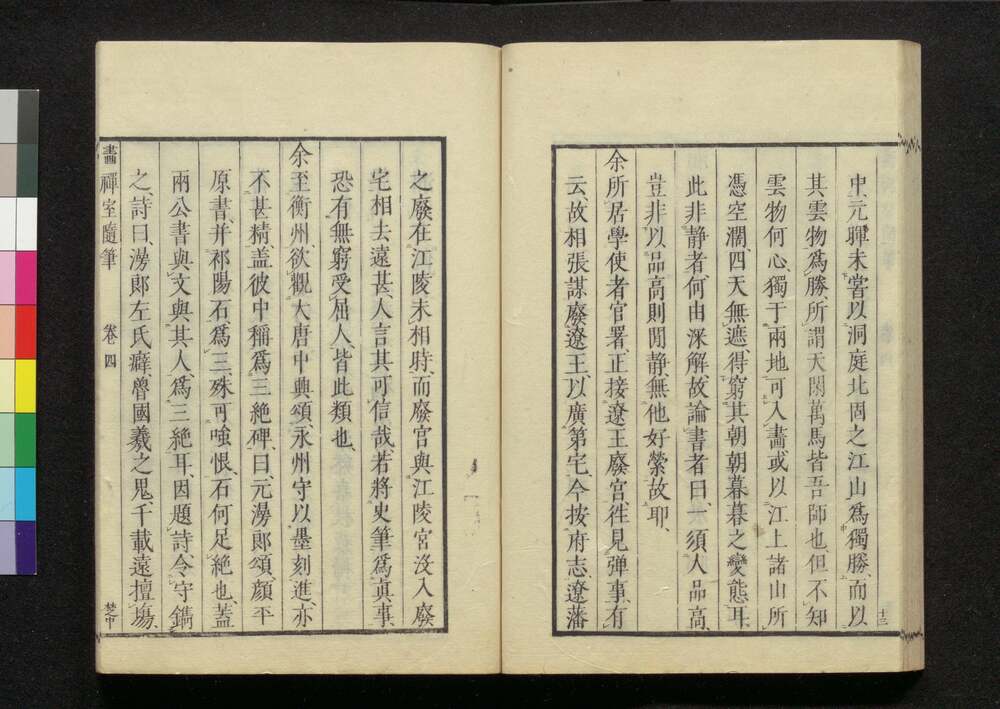 中元暉未嘗以洞庭北固之江山爲獨勝、而以
其雲物爲勝、所謂天閑萬馬皆吾師也、但不知
雲物何心、獨于兩地可入畵、或以江上諸山所
憑空濶、四天無遮、得窮其朝朝暮暮之變態耳、
此非静者、何由深解、故論書者曰、一須人品高、
豈非以品高則閒静無他好縈故耶、
余所居學使者官署、正接遼王廢宮、徃見弹事、有
云、故相張謀廢遼王、以廣第宅、今按府志、遼藩
十三
之廢在江陵未相時、而廢宮與江陵宮沒入廢
宅相去遠甚、人言其可信哉、若將史筆爲眞事、
恐有無窮受屈人、皆此類也、
余至衡州、欲觀大唐中興頌、永州守以墨刻進、亦
不甚精、盖彼中稱爲三絶碑、曰、元漫郎頌、顔平
原書、并祁陽石爲三、殊可嗤恨、石何足絶也、蓋
兩公書與文與其人爲三絶耳、因題詩、令守鐫
之、詩曰、漫郎左氏癖、魯國羲之鬼、千載遠擅塲、
畵禪室隨筆 卷四